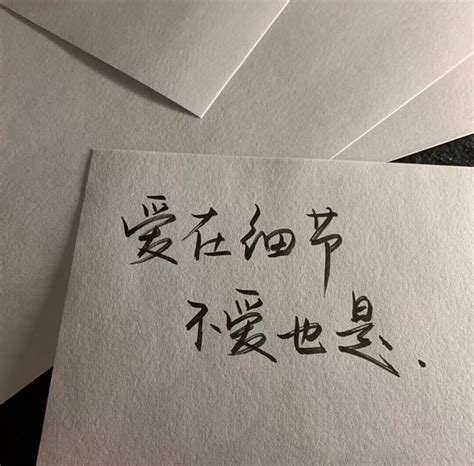 爱在细节
不爱也是.